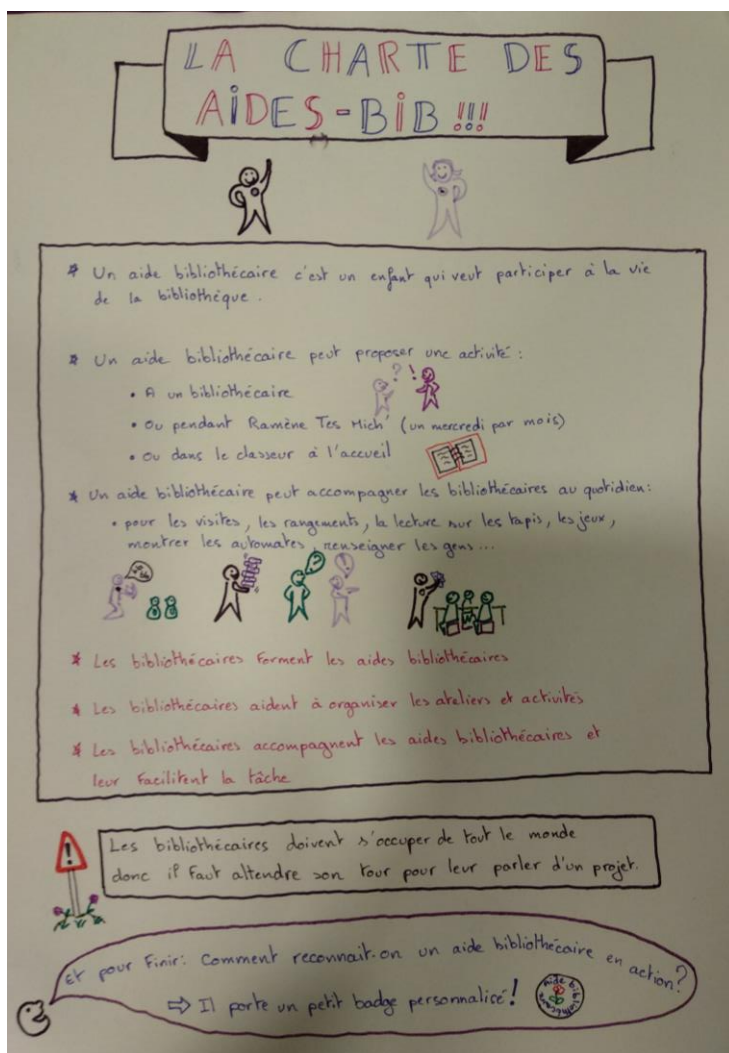 LA CHARTE DES
AIDES-BIB!!!
* Un aide bibliothécaire c'est un enfant qui veut participer à la vie
de la bibliothèque.
* Un aide bibliothécaire peut proposer une activité :
• A un bibliothécaire
? !
• Ou pendant Ramène Tes Mich' (un mercredi par mois)
• Ou dans le classeur à l'accueil
* Un aide bibliothécaire peut accompagner les bibliothécaires au quotidien:
• pour les visites, les rangements, la lecture sur les tapis, les jeux,
montrer les automates, renseigner les gens...
? !
* Les bibliothécaires forment les aides bibliothécaires
* Les bibliothécaires aident à organiser les ateliers et activités
* Les bibliothécaires accompagnent les aides bibliothécaires et
leur facilitent la tâche
!
Les bibliothécaires doivent s'occuper de tout le monde
donc il faut attendre son tour pour leur parler d'un projet.
Et pour finir: Comment reconnait-on un aide bibliothécaire en action?
⇒ Il porte un petit badge personnalisé!
Aide bibliothécaire